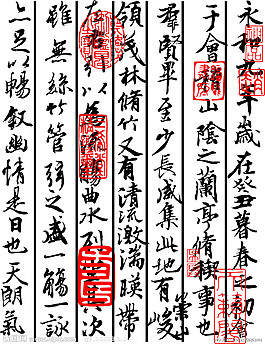 永和九年歲在癸丑暮春之初會
于會稽山陰之蘭亭脩稧事也
羣賢畢至少長咸集此地有崇山峻
領茂林脩竹又有清流激湍暎帶
左右引以為流觴曲水列坐其次
雖無絲竹管弦之盛一觴一詠
亦足以暢敘幽情是日也天朗氣